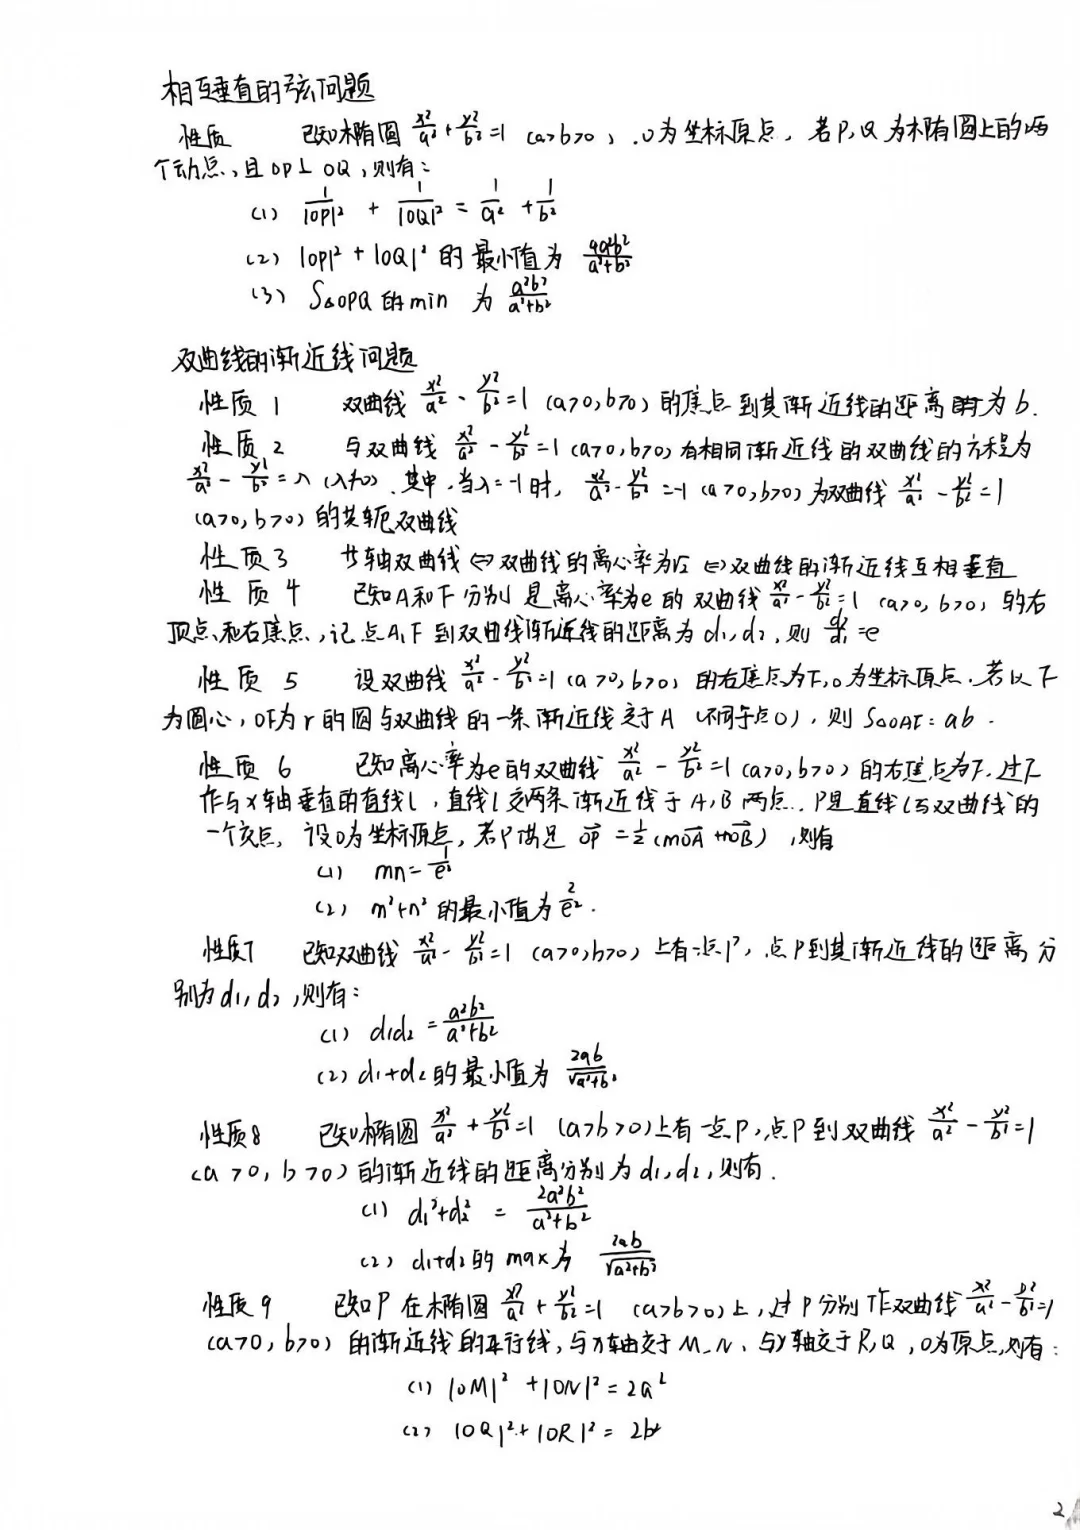 相互垂直的弦问题
性质 已知椭圆 x²/a² + y²/b² = 1 (a>b>0), O为坐标原点, 若P,Q为椭圆上的两
个动点, 且OP⊥OQ, 则有:
(1) 1/|OP|² + 1/|OQ|² = 1/a² + 1/b²
(2) |OP|² + |OQ|² 的最小值为 4a²b²/(a²+b²)
(3) S△OPQ 的min 为 a²b²/(a²+b²)
双曲线的渐近线问题
性质1 双曲线 x²/a² - y²/b² = 1 (a>0, b>0) 的焦点到其渐近线的距离为b.
性质2 与双曲线 x²/a² - y²/b² = 1 (a>0, b>0) 有相同渐近线的双曲线的方程为
x²/a² - y²/b² = λ (λ≠0). 其中, 当λ=-1时, x²/a² - y²/b² = -1 (a>0, b>0) 为双曲线 x²/a² - y²/b² = 1
(a>0, b>0) 的共轭双曲线
性质3 轴双曲线 ⇔ 双曲线的离心率为√2 ⇔ 双曲线的渐近线互相垂直
性质4 已知A和F分别是离心率为e的双曲线 x²/a² - y²/b² = 1 (a>0, b>0) 的右
顶点和右焦点, 记点A,F到双曲线渐近线的距离为d₁,d₂, 则 d₂/d₁ = e
性质5 设双曲线 x²/a² - y²/b² = 1 (a>0, b>0) 的右焦点为F, O为坐标原点. 若以F
为圆心, OF为r的圆与双曲线的一条渐近线交于A (不同于点O), 则 S△OAF = ab.
性质6 已知离心率为e的双曲线 x²/a² - y²/b² = 1 (a>0, b>0) 的右焦点为F, 过F
作与x轴垂直的直线l, 直线l交两条渐近线于A,B两点. P是直线l与双曲线的
一个交点, 设O为坐标原点, 若P满足 OP→ = 1/2 (mOA→ + nOB→), 则有
(1) mn = 1/e²
(2) m²+n² 的最小值为 2/e².
性质7 已知双曲线 x²/a² - y²/b² = 1 (a>0, b>0) 上有一点P, 点P到其渐近线的距离分
别为d₁,d₂, 则有:
(1) d₁d₂ = a²b²/(a²+b²)
(2) d₁+d₂的最小值为 2ab/√(a²+b²)
性质8 已知椭圆 x²/a² + y²/b² = 1 (a>b>0) 上有一点P, 点P到双曲线 x²/a² - y²/b² = 1
(a>0, b>0) 的渐近线的距离分别为d₁,d₂, 则有.
(1) d₁²+d₂² = 2a²b²/(a²+b²)
(2) d₁+d₂的 max为 2ab/√(a²+b²)
性质9 已知P在椭圆 x²/a² + y²/b² = 1 (a>b>0) 上, 过P分别作双曲线 x²/a² - y²/b² = 1
(a>0, b>0) 的渐近线的平行线, 与x轴交于M、N、与y轴交于R,Q, O为原点, 则有:
(1) |OM|² + |ON|² = 2a²
(2) |OQ|² + |OR|² = 2b²
2